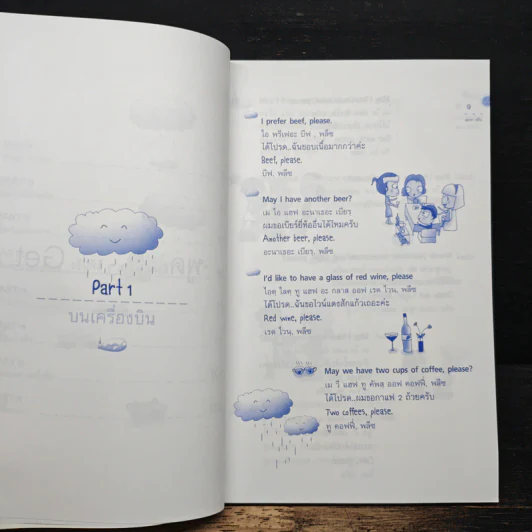 Part 1
บนเครื่องบิน
9
I prefer beef, please.
ไอ พรีเฟอะ บีฟ , พลีซ
ได้โปรด..ฉันชอบเนื้อมากกว่าค่ะ
Beef, please.
บีฟ, พลีซ
May I have another beer?
เม ไอ แฮฟ อะนาเธอะ เบียร
ผมขอเบียร์ยี่ห้ออื่นได้ไหมครับ
Another beer, please.
อะนาเธอะ เบียร, พลีซ
I'd like to have a glass of red wine, please
ไอดฺ ไลคฺ ทู แฮฟ อะ กลาส ออฟ เรด ไวน, พลีซ
ได้โปรด..ฉันขอไวน์แดงสักแก้วเถอะค่ะ
Red wine, please.
เรด ไวน, พลีซ
May we have two cups of coffee, please?
เม วี แฮฟ ทู คัพสฺ ออฟ คอฟฟี่, พลีซ
ได้โปรด...ผมขอกาแฟ 2 ถ้วยครับ
Two coffees, please.
ทู คอฟฟี่, พลีซ